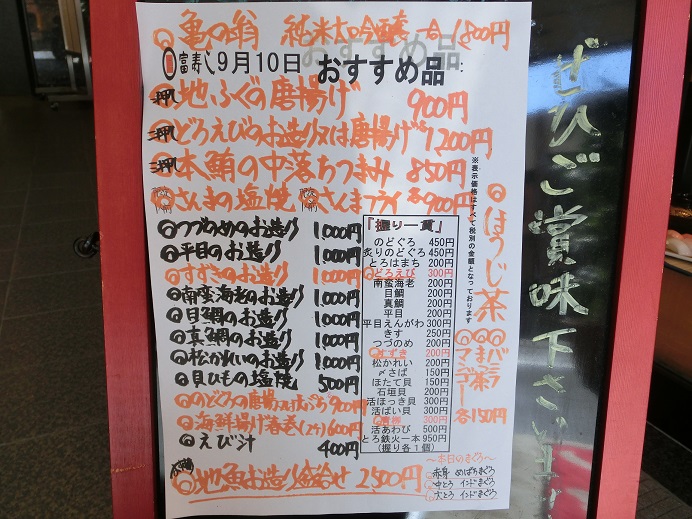 亀の翁 純米大吟醸 一合 1800円
富寿し 9月10日 おすすめ品
一押 地ふぐの唐揚げ 900円
二押 どろえびのお造り又は唐揚げ 各1200円
三押 本鮪の中落ちつまみ 850円
さんまの塩焼 さんまフライ 各900円
つづめのお造り 1000円
平目のお造り 1000円
すずきのお造り 1000円
南蛮海老のお造り 1000円
目鯛のお造り 1000円
真鯛のお造り 1000円
松かれいのお造り 1000円
貝ひもの塩焼 500円
のどぐろの唐揚 900円
海鮮揚げ春巻(2ケ) 600円
えび汁 400円
地魚お造り盛合せ 2500円
「握り一貫」
のどぐろ 450円
炙りのどぐろ 450円
とろはまち 200円
どろえび 300円
南蛮海老 200円
目鯛 200円
真鯛 200円
平目 200円
平目えんがわ 300円
きす 250円
つづのめ 200円
すずき 200円
松かれい 200円
〆さば 150円
ほたて貝 150円
石垣貝 200円
活ほっき貝 300円
活ばい貝 300円
青柳 300円
活あわび 500円
とろ鉄火一本 950円
(握り各1個)
※表示価格はすべて税別の金額となっております
ほうじ茶
バニラ
まっ茶
マンゴー
各150円
〜本日のまぐろ〜
赤身 めばちまぐろ
中とろ インドまぐろ
大とろ インドまぐろ
ぜひご賞味下さいませ